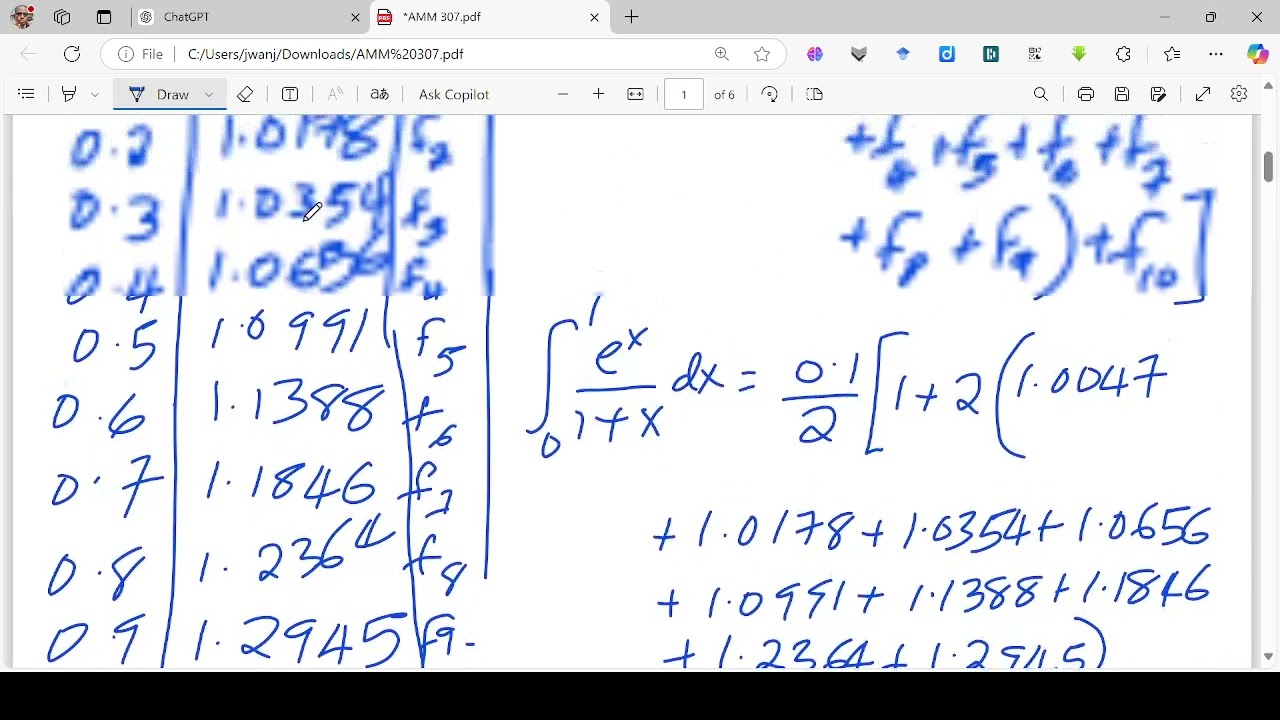 ChatGPT
*AMM 307.pdf
File C:/Users/iwanj/Downloads/AMM%20307.pdf
Draw Ask Copilot 1 of 6
0.2 1.0178 f2
0.3 1.0354 f3
0.4 1.0656 f4
0.5 1.0991 f5
0.6 1.1388 f6
0.7 1.1846 f7
0.8 1.2364 f8
0.9 1.2945 f9
+f4 +f5 + f6 + f7
+ f8 + f9) + f10]
∫01 e^x/1+x dx = 0.1/2 [1 + 2(1.0047
+ 1.0178 + 1.0354 + 1.0656
+ 1.0991 + 1.1388 + 1.1846
+ 1.2364 + 1.2945)